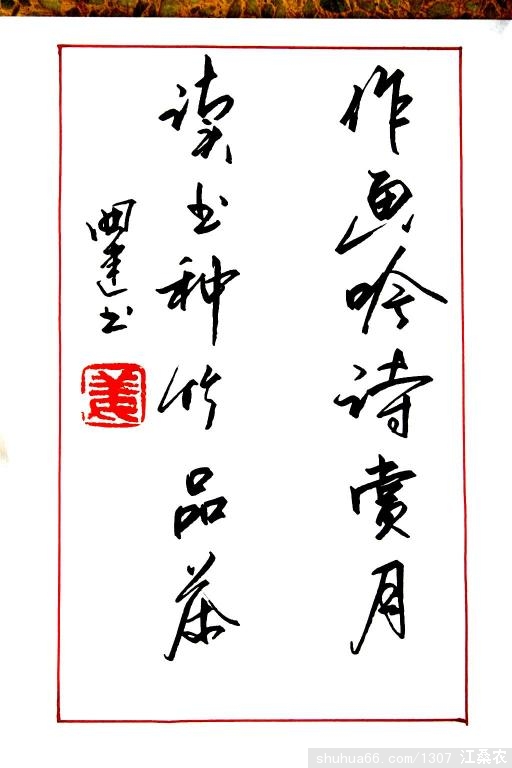 作画吟诗赏月
读书种竹品茶
曲建书
shuhua66.com/1307 江桑农